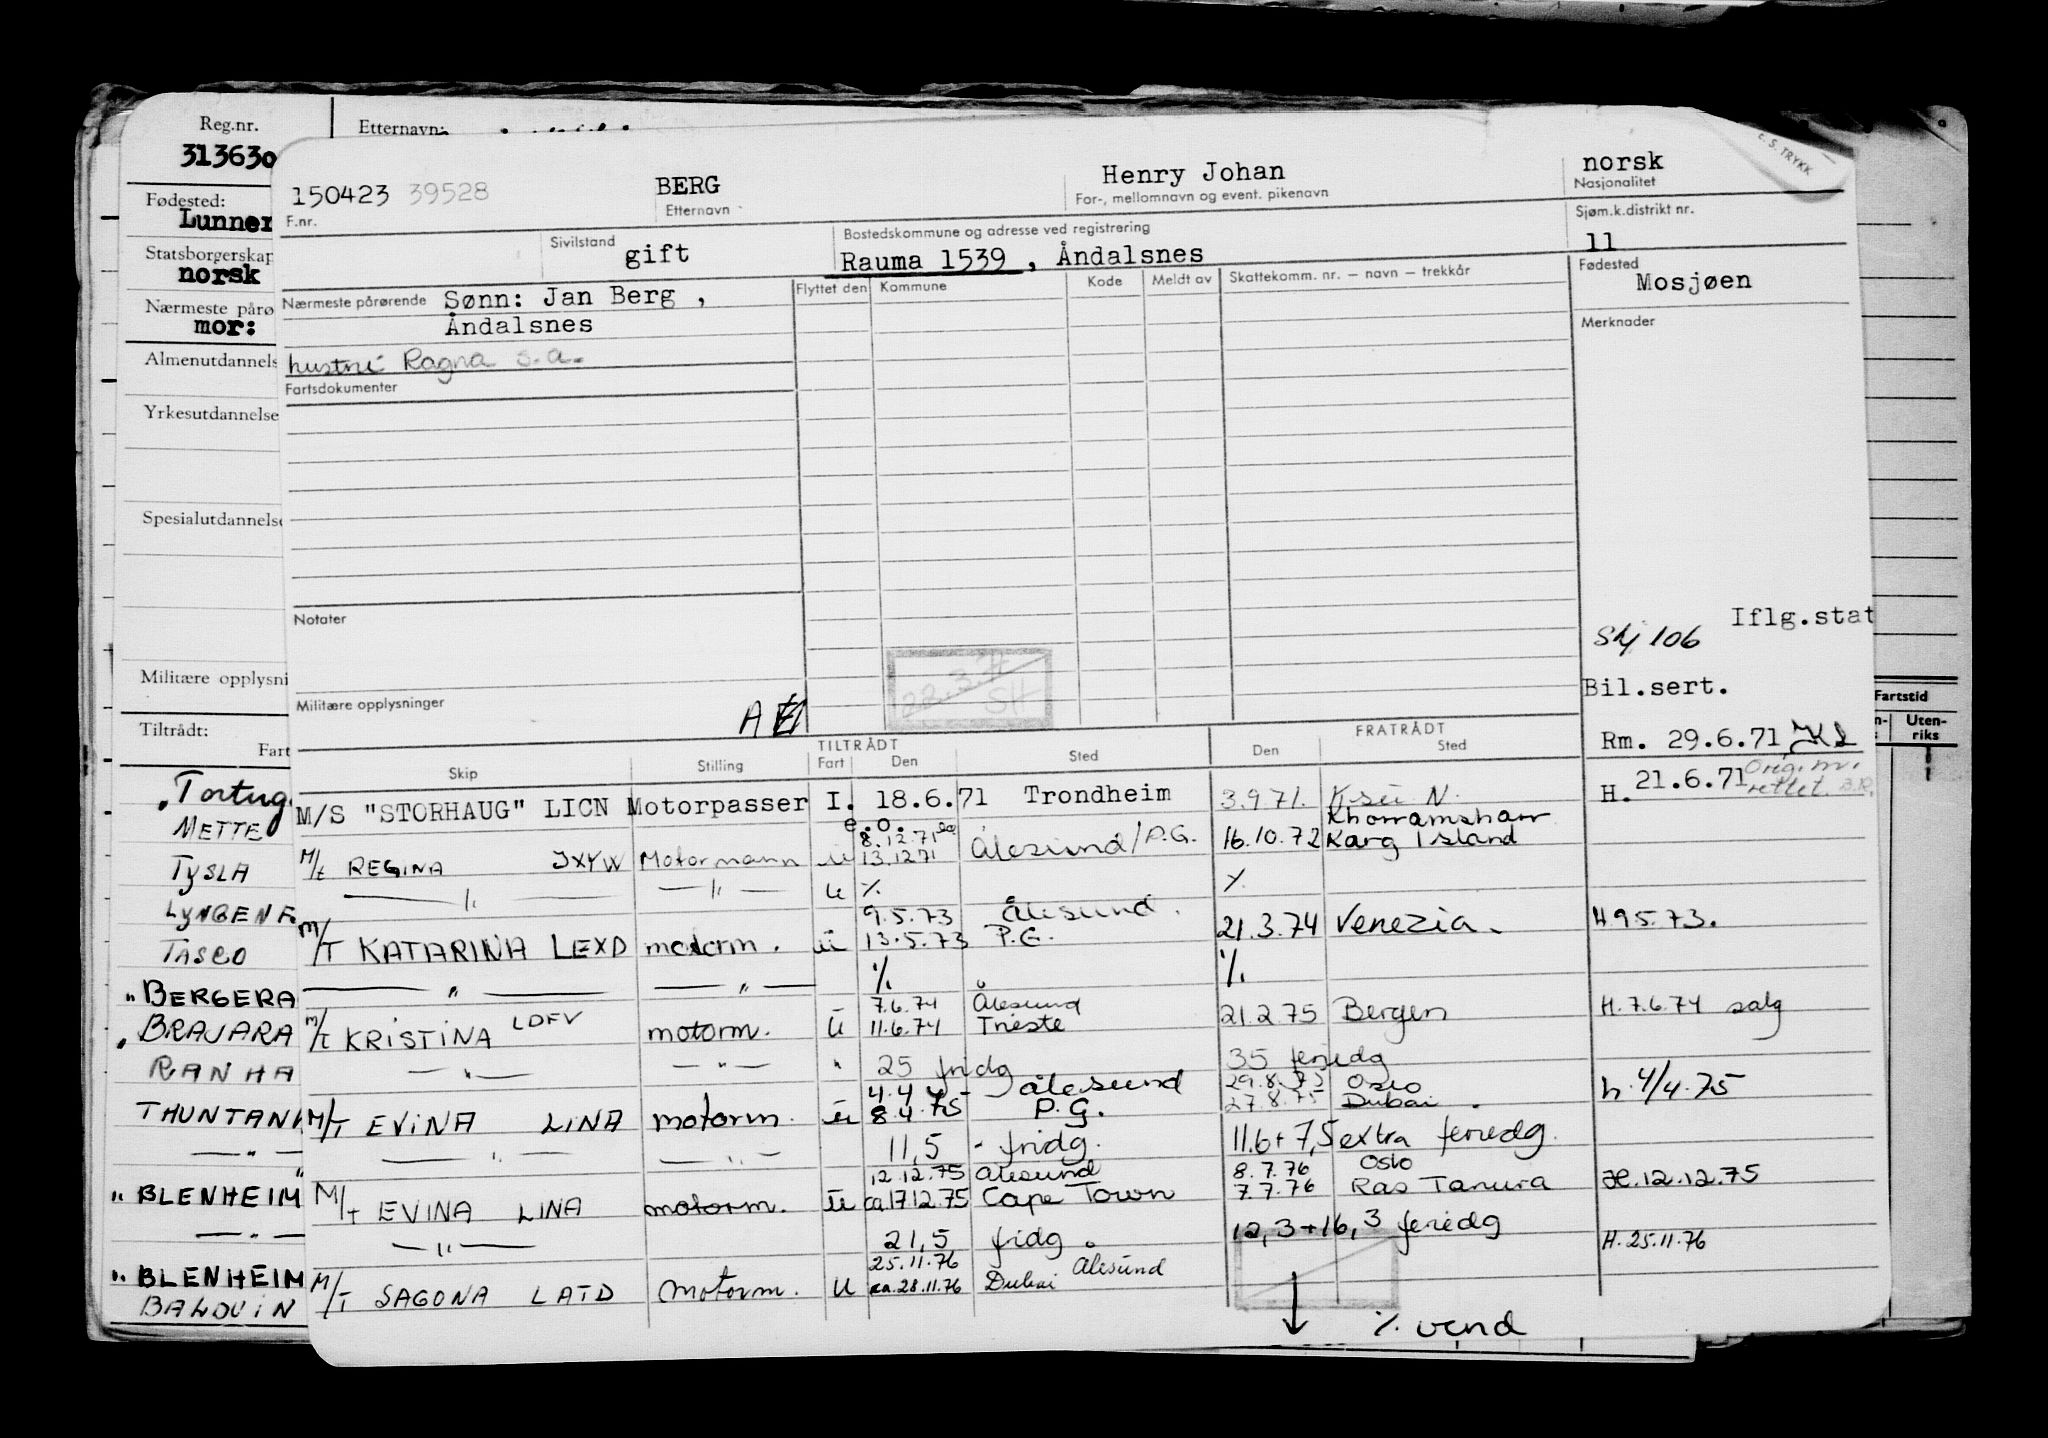 Reg.nr.
Etternavn:
313630
Fødested:
Lunner
Statsborgerskap
norsk
Nærmeste pårø
mor:
Almenutdannels
Yrkesutdannelse
Spesialutdannelse
Militære opplysni
Tiltrådt:
Fart
METTE
TYSLA
TASCO
BERGERA
BRAJARA
RANHA
" BLENHEIM
" BLENHEIM
BALDUIN
Fartstid
Uten-
riks
c. S. TRYKK
150423 39528 BERG Henry Johan norsk
F.nr. Etternavn For-, mellomnavn og event. pikenavn Nasjonalitet
Sivilstand gift Bostedskommune og adresse ved registrering Sjøm.k.distrikt nr.
Rauma 1539 , Åndalsnes 11
Nærmeste pårørende Sønn: Jan Berg , Flyttet den Kommune Kode Meldt av Skattekomm. nr. – navn – trekkår Fødested
Mosjøen
Åndalsnes
Merknader
hustru Ragna s.a.
Fartsdokumenter
Notater
Iflg.stat
Skj 106
22.3.71
SH
Bil.sert.
Militære opplysninger
Rm. 29.6.71
TILTRÅDT FRATRÅDT
Skip Stilling Fart Den Sted Den Sted
H. 21.6.71 Orig.m.
rettet. B.R.
M/S "STORHAUG" LICN Motorpasser I. 18.6.71 Trondheim 3.9.71.
e.o. Khorramsharr
M/t REGINA JXYW Motormann u 8.12.71 13.12.71 Ålesund/P.G. 16.10.72 Karg Island
— " — — " — u % %
9.5.73 Ålesund.
M/T KATARINA LEXD motorm. u 13.5.73 P.G. 21.3.74 Venezia. H 9.5.73.
— " — — " — % %
7.6.74 Ålesund
M/t KRISTINA LDFV motorm. u 11.6.74 Trieste 21.2.75 Bergen H. 7.6.74 salg
— " — — " — " 25 fridg 35 feriedg
4.4.75 Ålesund 29.8.75 Oslo
M/T EVINA LINA motorm. u 8.4.75 P.G. 27.8.75 Dubai. h. 4/4.75
— " — — " — 11,5 - fridg. 11.6+7,5 extra feriedg.
12.12.75 Ålesund 8.7.76 Oslo
M/t EVINA LINA motorm. u ca 17.12.75 Cape Town 7.7.76 Ras Tanura H. 12.12.75
— " — 21,5 fridg. 12,3+16,3 feriedg
25.11.76 Ålesund H. 25.11.76
M/T SAGONA LATD Motorm. U ca. 28.11.76 Dubai
% vend